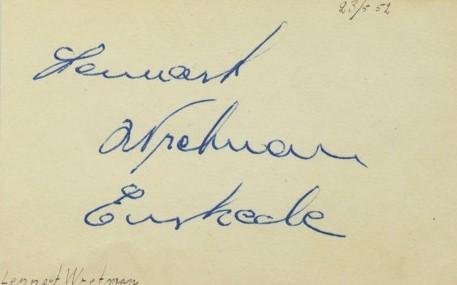 23/5 52
Lennart
Wretman
Enskede
Lennart Wretman